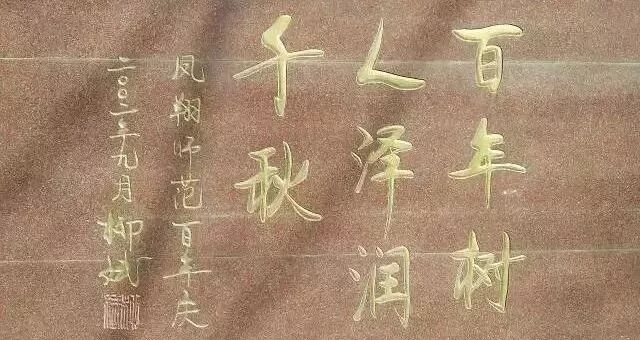 百年树
人泽润
千秋
凤翔师范百年庆
二〇〇二年九月
柳斌